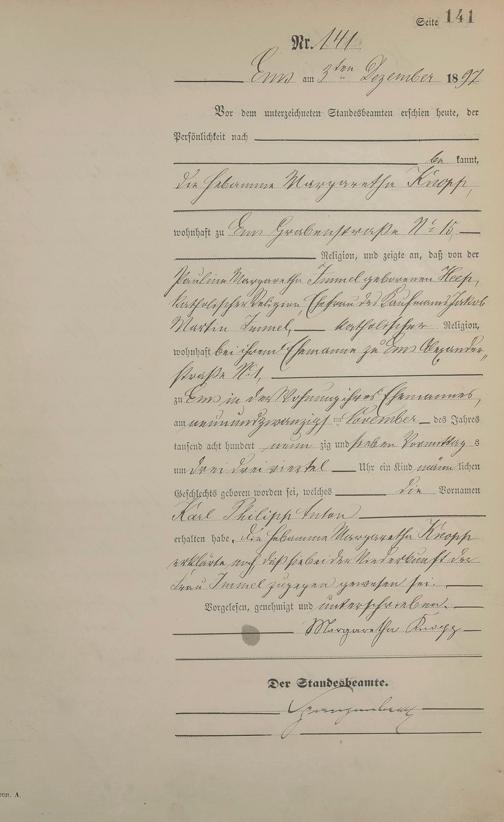 Seite 141
Nr. 141.
Ems am 3ten Dezember 1897
Vor dem unterzeichneten Standesbeamten erschien heute, der
Persönlichkeit nach
be kannt,
die Hebamme Margaretha Knopp,
wohnhaft zu Ems Grabenstraße No 15,
Religion, und zeigte an, daß von der
Pauline Margaretha Immel geborenen Heep,
katholischer Religion, Ehefrau des Kaufmanns Jakob
Martin Immel, katholischer Religion,
wohnhaft bei ihrem Ehemanne zu Ems Alexander„
straße No 1,
zu Ems in der Wohnung ihres Ehemannes,
am neunundzwanzigsten November des Jahres
tausend acht hundert neun zig und sieben Vormittag s
um drei drei viertel Uhr ein Kind männ lichen
Geschlechts geboren worden sei, welches die Vornamen
Karl Philipp Anton
erhalten habe. Die Hebamme Margaretha Knopp
erklärte, daß sie bei der Niederkunft der
Frau Immel zugegen gewesen sei.
Vorgelesen, genehmigt und unterschrieben.
Margaretha Knopp
Der Standesbeamte.